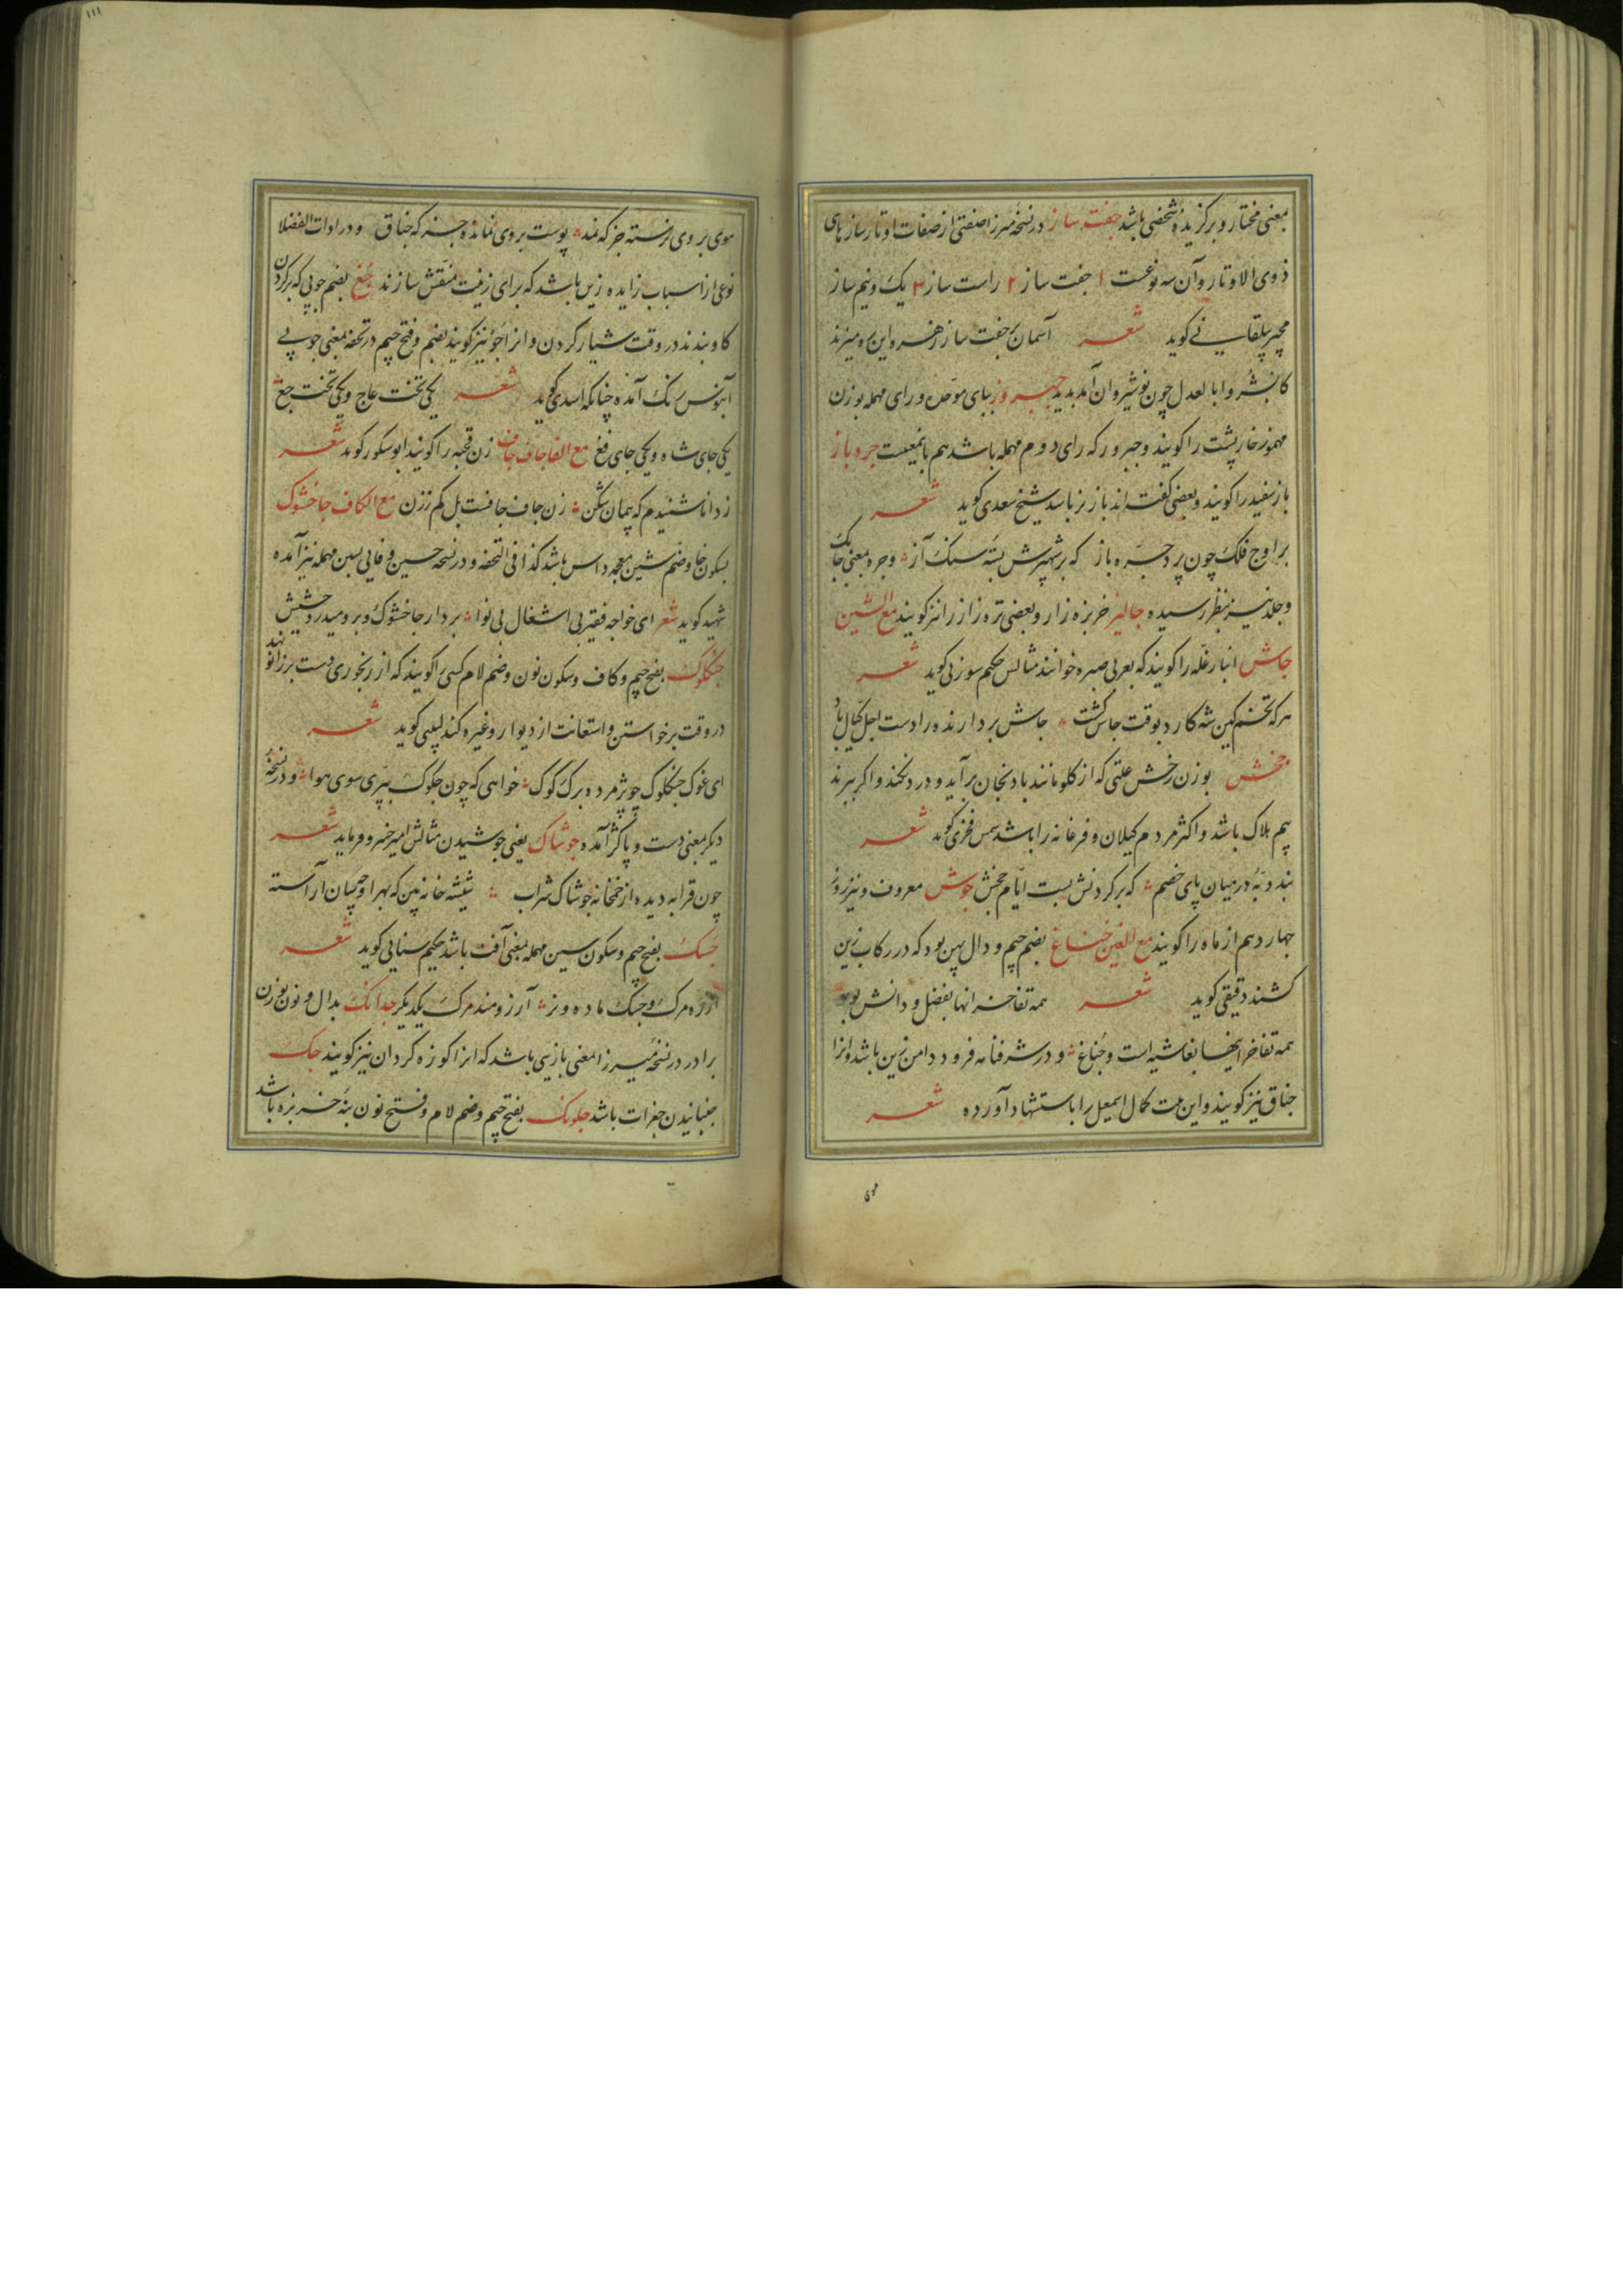 بمعنی مختار و برگزیده شخصی باشد جفت ساز در نسخه میرزا صفتی از صفات اوتار سازهای
ذوی الاوتار و آن سه نوعست ۱ جفت ساز ۲ راست ساز ۳ یک و نیم ساز
مجیر بیلقانی کوید شعر آسمان جفت ساز زهره این ره میزند
کانشر وا بالعدل چون نوشیروان آمد پدید جبروز ببای موحده و رای مهمله بوزن
مهموز خارپشت را کویند و جبرور که رای دوم مهمله باشد هم باینمعیست جره باز
باز سفید را کویند و بعضی کفته اند باز نر باشد شیخ سعدی کوید شعر
بر اوج فلک چون پرد جره باز که بر شهپرش بسته سنک آز و جره بمعنی چابک
و جلد نیز بنظر رسیده جالیز خربزه زار و بعضی تره زار را نیز کویند مع الشین
جاش انبار غله را کویند که بعربی صبره خوانند مثالش حکیم سوزنی کوید شعر
هر که تخم کین شه کارد بوقت جاس کشت جاش بردارنده را دست اجل کیال باد
جخش بوزن رخش علتی که از کلو مانند بادنجان برآید و درد نکند و اکر ببرند
بیم هلاک باشد و اکثر مردم کیلان و فرغانه را باشد شمس فخری کوید شعر
بند دبه در میان پای خصم که بر کردنش بست ایام جخش جوش معروف و نیز روز
چهاردهم از ماه را کویند مع الغین جناغ بضم جیم و دال پهن بود که در رکاب زین
کشند دقیقی کوید شعر همه تفاخر انها بفضل و دانش بود
همه تفاخر اینها بغاشیه است و جناغ و در شرفنامه فرود دامن زین باشد و انرا
جناق نیز کویند و این بیت کمال اسمعیل را باستشهاد آورده شعر
موی
۱۱۱
موی بر وی نرسته جز که نمد پوست بر وی نمانده جز که جناق و در ادات الفضلا
نوعی از اسباب زایده زین باشد که برای زینت منقش سازند جغ بضم چوبی که بر کردن
کاو بندند در وقت شیار کردن و انرا جوغ نیز کویند بضم و فتح جیم در تحفه بمعنی چوبی
آبنوس رنک آمده چنانکه اسدی کوید شعر یکی تخت عاج و یکی تخت جغ
یکی جای شاه و یکی جای فغ مع الفا جاف جاف زن قحبه را کویند ابوشکور کوید شعر
ز دانا شنیدم که پیمان شکن زن جاف جافست بل کم ز زن مع الکاف جاخشوک
بسکون خا و ضم شین معجمه داس باشد کذا فی التحفه و در نسخه حسین وفایی بسین مهمله نیز آمده
شهید کوید شعر ای خواجه فقیر بی اشغال بی نوا بردار جاخشوک و برو میدرو حشیش
جنکلوک بفتح جیم و کاف و سکون نون و ضم لام کسی را کویند که از رنجوری دست بر زانو نهد
در وقت برخواستن و استعانت از دیوار و غیره کند لبیبی کوید شعر
ای غوک جنکلوک چو پژمرده برک کوک خواهی که چون جکوک بپری سوی هوا و در نسخه
دیکر بمعنی دست و پا کژ آمده جوشاک یعنی جوشیدن مثالش امیر خسرو فرماید شعر
چون قرابه دیده از خمخانه جوشاک شراب شیشه خانه بین که بهر او چسان آراسته
جسک بفتح جیم و سکون سین مهمله بمعنی آفت باشد حکیم سنایی کوید شعر
مرک و جسک ماده و نر آرزومند مرک یکدیکر جدانک بدال و نون بوزن
برادر در نسخه میرزا بمعنی بازیی باشد که انرا کوزه کردان نیز کویند جک
جنبانیدن جغرات باشد جلونک بفتح جیم و ضم لام و فتح نون بنه خربزه باشد